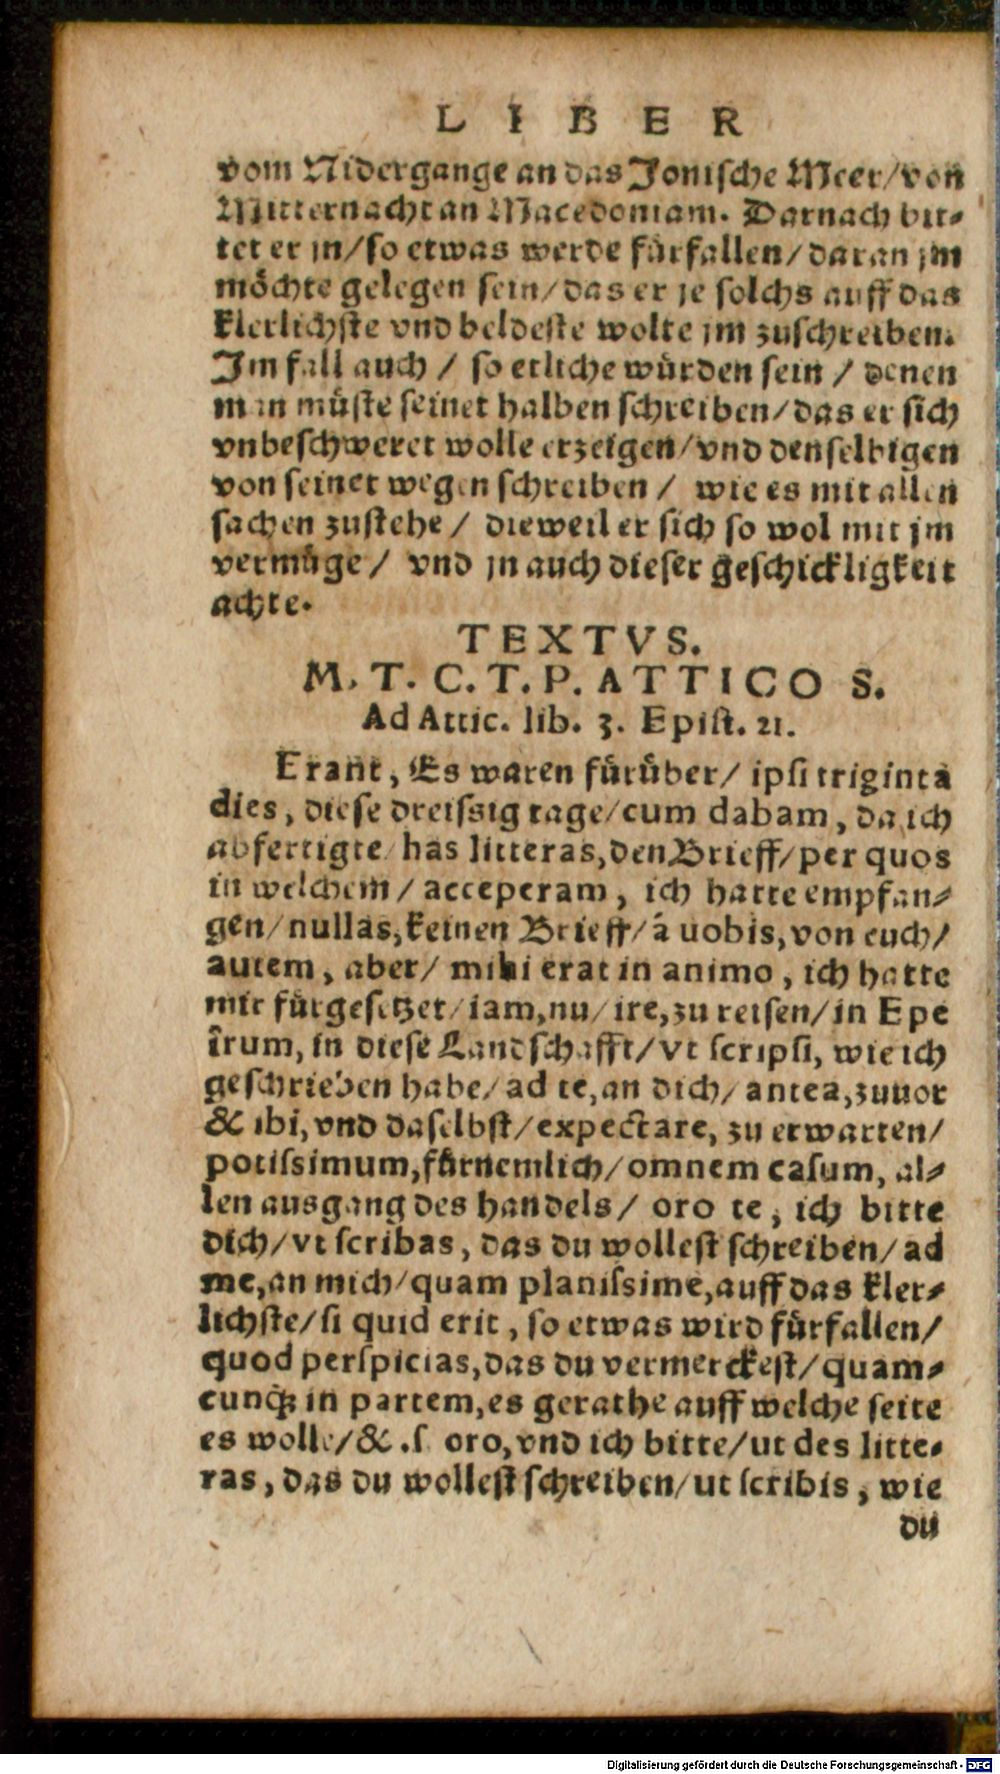 LIBER
vom Nidergange an das Jonische Meer/von
Mitternacht an Macedoniam. Darnach bit⸗
tet er jn/so etwas werde fürfallen/daran jm
möchte gelegen sein/das er je solchs auff das
klerlichste vnd beldeste wolte jm zuschreiben.
Im fall auch / so etliche würden sein / denen
man müste seinet halben schreiben/das er sich
vnbeschweret wolle erzeigen/vnd denselbigen
von seinet wegen schreiben / wie es mit allen
sachen zustehe / dieweil er sich so wol mit jm
vermüge / vnd jn auch dieser geschickligkeit
achte.
TEXTVS.
M. T. C. T. P. ATTICO S.
Ad Attic. lib. 3. Epist. 21.
Erant, Es waren fürüber/ ipsi triginta
dies, diese dreissig tage/cum dabam, da ich
abfertigte/has litteras,den Brieff/per quos
in welchem / acceperam, ich hatte empfan⸗
gen/nullas,keinen Brieff/á uobis,von euch/
autem, aber/ mihi erat in animo, ich hatte
mir fürgesetzet/iam,nu/ire,zu reisen/in Epe
îrum, in diese Landschafft/vt scripsi, wie ich
geschrieben habe/ad te,an dich/antea,zuuor
& ibi,vnd daselbst/expectare, zu erwarten/
potissimum,fürnemlich/omnem casum, al⸗
len ausgang des handels/ oro te, ich bitte
dich/vt scribas, das du wollest schreiben/ad
me,an mich/quam planissime,auff das kler⸗
lichste/si quid erit, so etwas wird fürfallen/
quod perspicias,das du vermerckest/quam⸗
cunq; in partem,es gerathe auff welche seite
es wolle/&.s oro,vnd ich bitte/ut des litte⸗
ras, das du wollest schreiben/ut scribis, wie
du
Digitalisierung gefördert durch die Deutsche Forschungsgemeinschaft - DFG